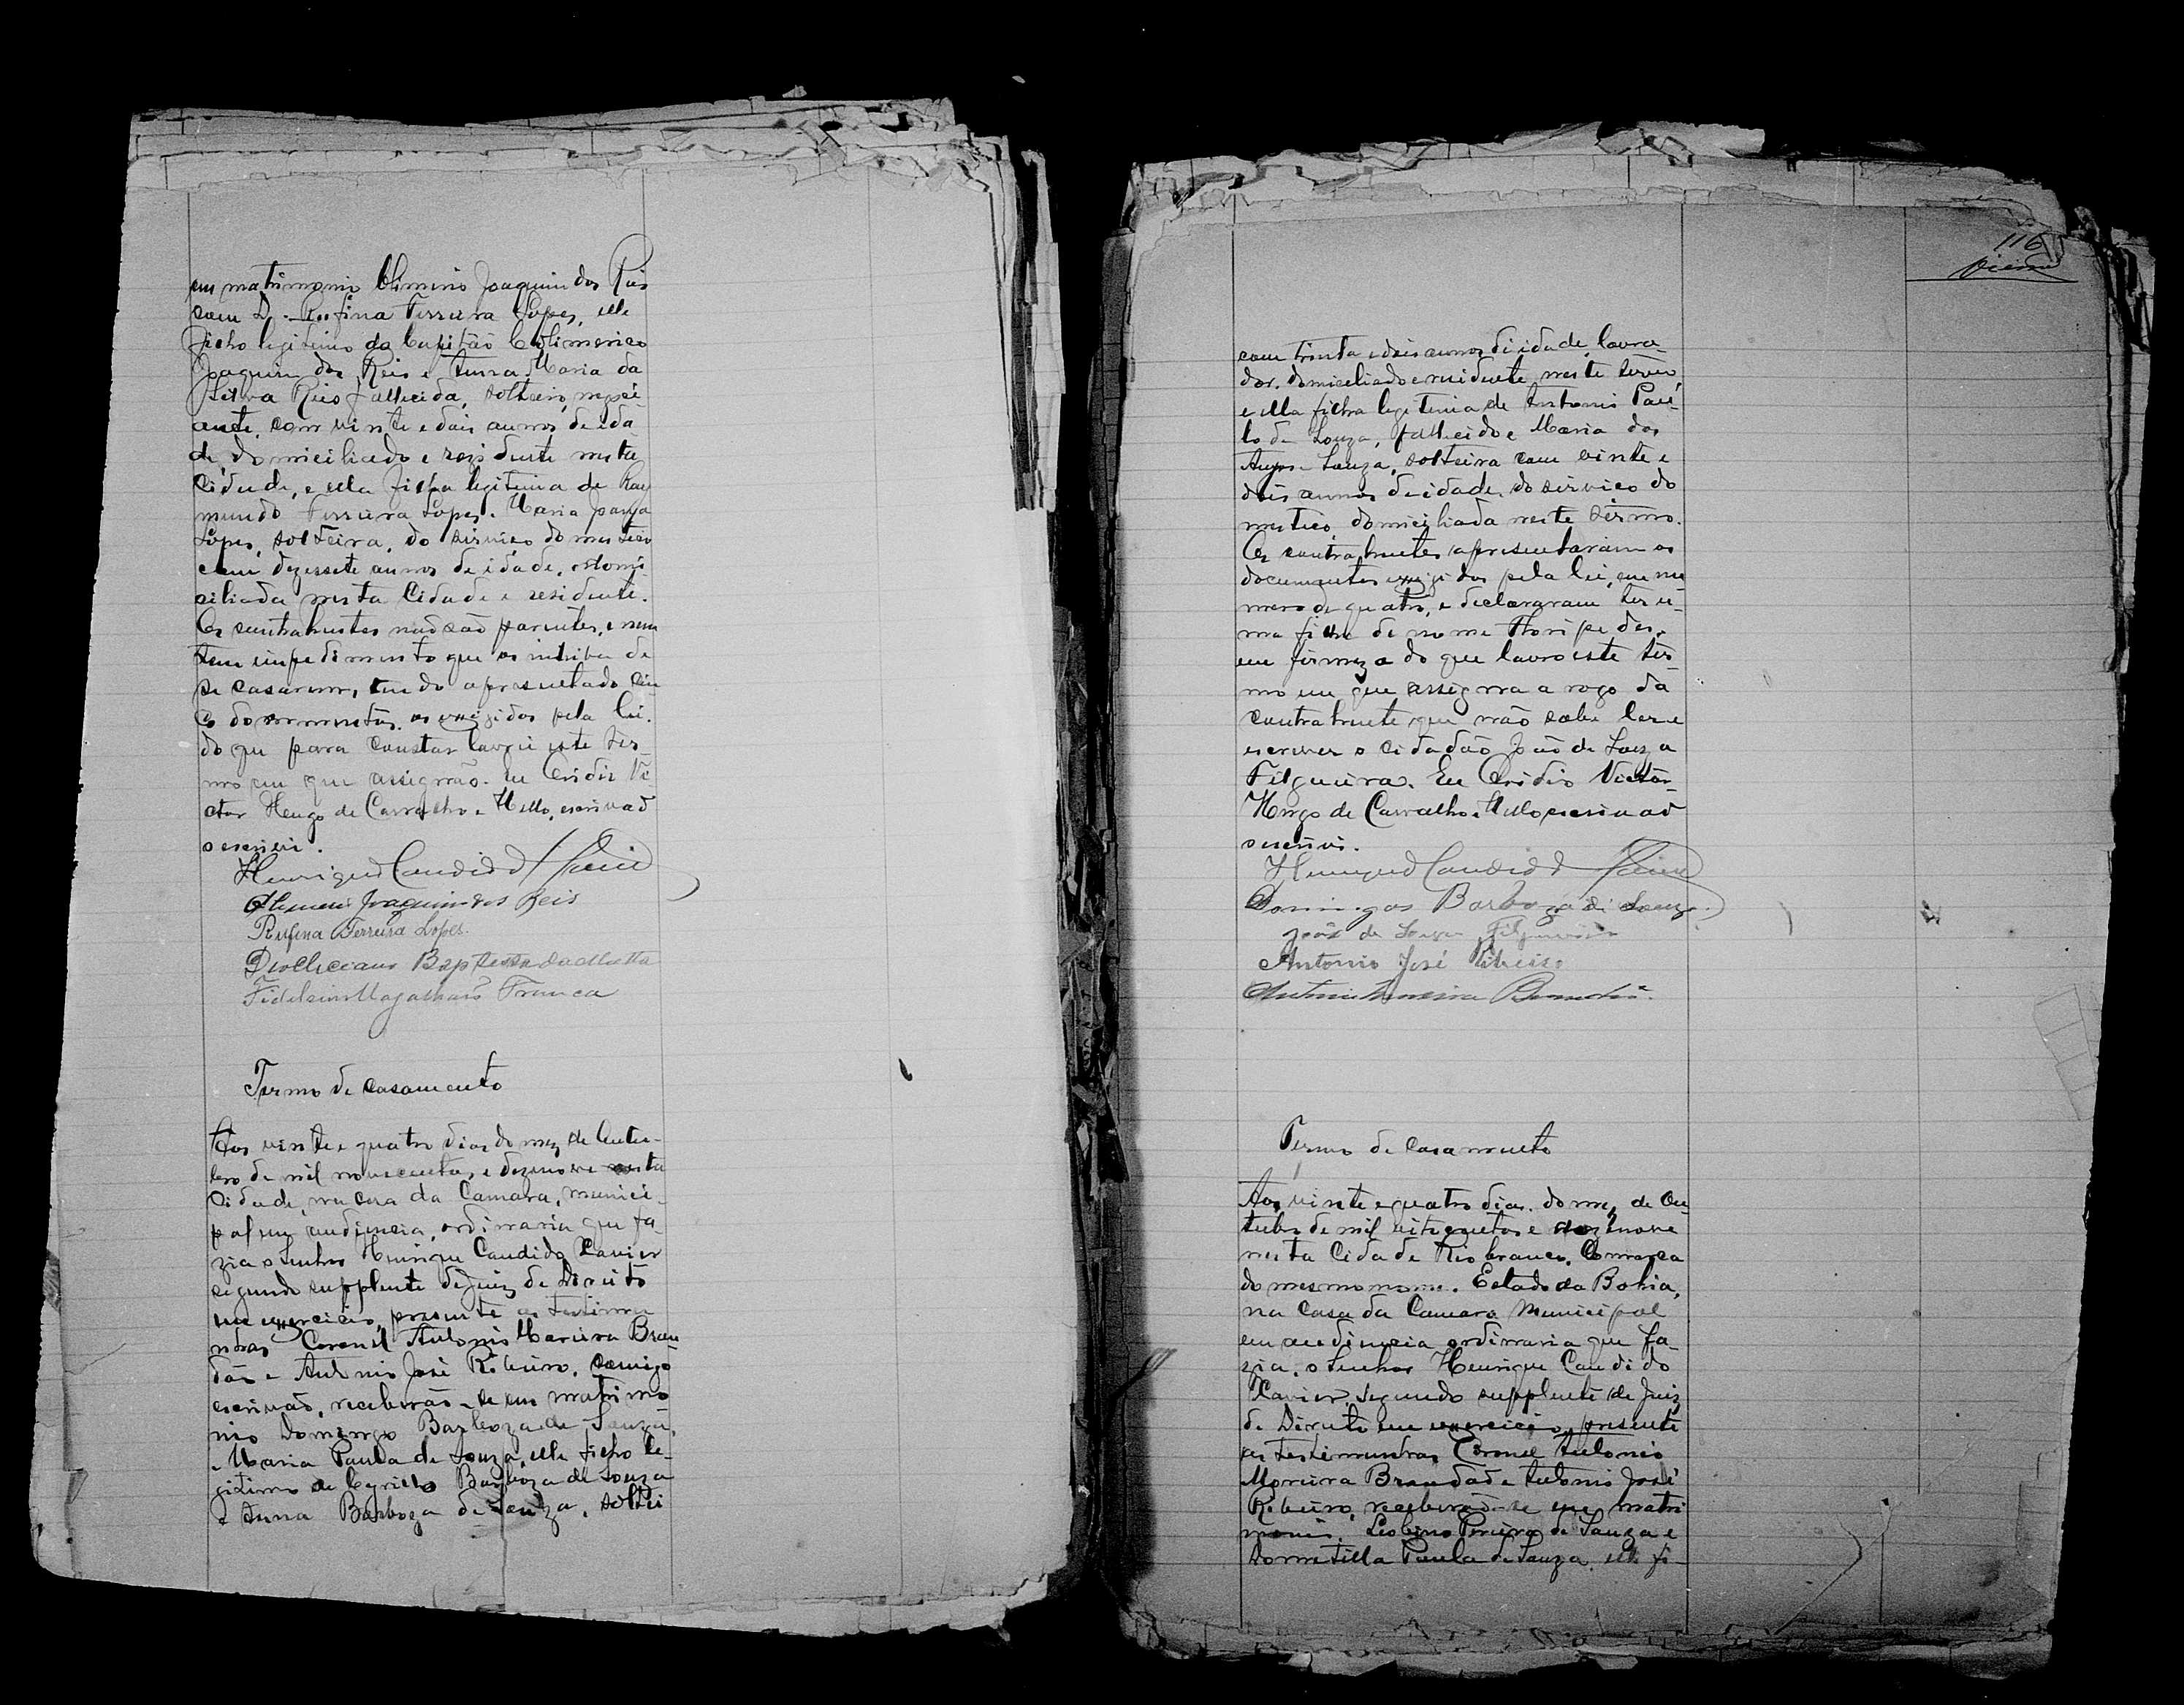 em matrimonio Olimerio Joaquim dos Reis
com D. Rufina Ferreira Lopes, elle
filho legitimo do Capitão
Joaquim dos Reis e Anna Maria da
Silva Reis fallecida, solteiro, nego-
ciante, com vinte e dois annos de ida
de, domiciliado e rezidente nesta
Cidade, e ella filha legitima de Ray
mundo Ferreira Lopes e Maria
Lopes, solteira, do serviço domestico
com dezessete annos de idade, domi-
ciliada nesta Cidade e residente.
Os contrahentes não são parentes, e nem
tem impedimento que os inhiba de
se casarem, tendo apresentado cin
co documentos os exigidos pela lei.
do que para constar lavrei este ter-
mo em que assignão. Eu Ovidio Vi
ctor Hugo de Carvalho e Mello, escrivão
o escrevi.
Henrique Candido Xavier
Olimerio Joaquim dos Reis
Rufina Ferreira Lopes.
Diocleciano Baptista da Matta
Fidelcino Magalhães França
Termo de casamento
Aos vinte e quatro dias do mez de Outu-
bro de mil novecentos e dezenove nesta
Cidade, na casa da Camara, munici-
pal em audiencia, ordinaria que fa-
zia o Senhor Henrique Candido Xavier
segundo supplente de Juiz de Direito
em exercicio, presente as testimu
nhas Coronel Antonio Moreira Bran
dão e Antonio José Ribeiro, comigo
escrivão, receberão-se em matrimo
nio Domingo Barboza de Souza,
e Maria Paula de Souza, elle filho le-
gitimo de Cyrillo Barboza de Souza
e Anna Barboza de Souza, soltei
116
com trinta e dois annos de idade, lavra-
dor, domiciliado e rezidente neste termo
e ella filha legitima de Antonio Pau-
lo de Souza, fallecido e Maria dos
Anjos Souza, solteira com vinte e
dois annos de idade, do serviço do
mestico, domiciliada neste termo.
Os contrahentes apresentaram os
documentos exigidos pela lei, em nu
mero de quatro, e declararam ter u-
ma filha de nome
em firmeza do que lavro este ter-
mo em que assigna a rogo da
contrahente que não sabe ler e
escrever o cidadão João de Souza
Filgueira. Eu Ovidio Victor
Hugo de Carvalho e Mello escrivão
o escrevi.
Henrique Candido Xavier
Domingos Barboza de Souza.
João de Souza Filgueira
Antonio José Ribeiro
Antonio Moreira Brandão.
Termo de casamento
Aos vinte e quatro dias do mez de Ou-
tubro de mil oitocentos e dezenove
nesta Cidade Rio branco, Comarca
do mesmo nome. Estado da Bahia,
na casa da Camara Municipal
em audiencia ordinaria que fa-
zia, o Senhor Henrique Candido
Xavier, segundo supplente de Juiz
de Direito em exercicio, presente
as testimunhas Coronel Antonio
Moreira Brandão e Antonio José
Ribeiro, receberão-se em matri
monio, Leolino Pereira de Souza e
Dometilla Paula de Souza, elle fi-